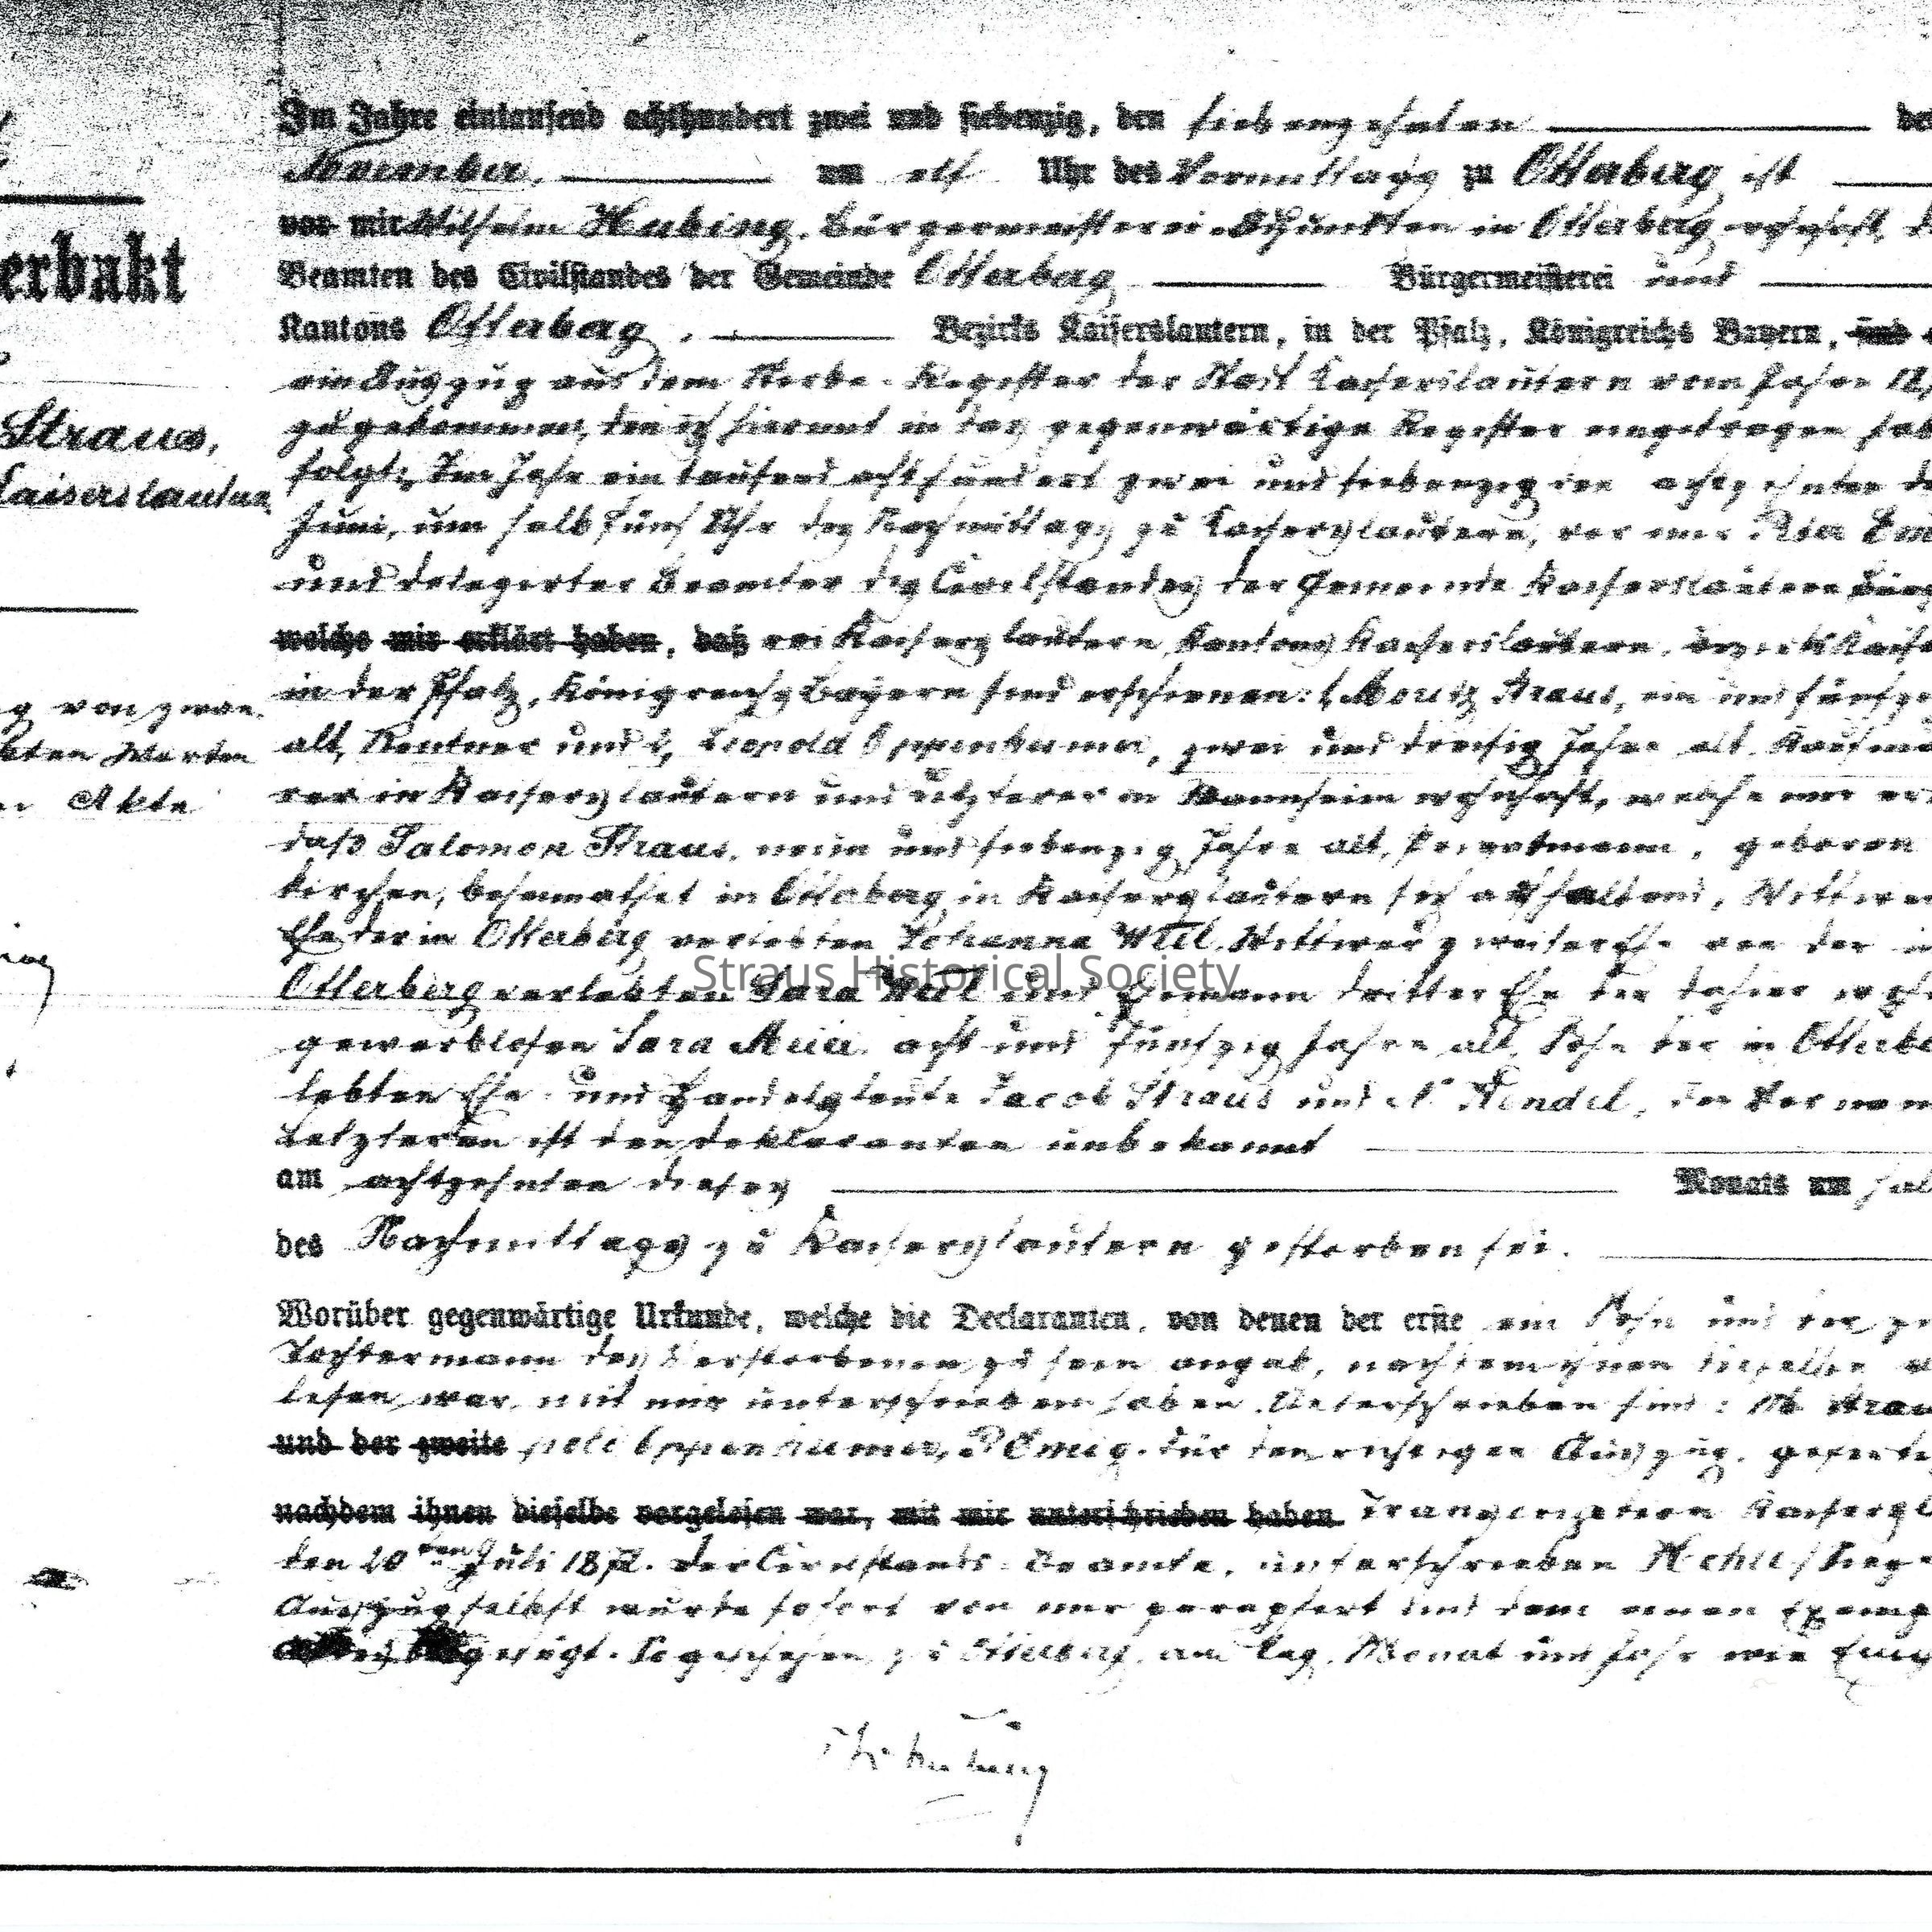 Im Jahre eintausend achthundert zwei und siebenzig, den siebenzehnten de
November, um elf Uhr des Vormittags zu Otterberg ist
vor mir Wilhelm Hubing, Bürgermeisterei-Adjunkten in Otterberg
Beamten des Civilstandes der Gemeinde Otterberg Bürgermeisterei und
Kantons Otterberg, Bezirks Kaiserslautern, in der Pfalz, Königreichs Bayern, und
ein Auszug aus dem Sterbe-Register der Stadt Kaiserslautern vom Jahre 18
zugekommen, den ich hiermit in das gegenwärtige Register eingetragen hab
Straus,
folgt: Im Jahr ein tausend achthundert zwei und siebenzig den achtzehnten de
Kaiserslautern
Juni, um halb fünf Uhr des Nachmittags zu Kaiserslautern, vor mir Peter
und delegirter Beamter des Civilstandes der Gemeinde Kaiserslautern
welche mir erklärt haben, daß Kaiserslautern, Kantons Kaiserslautern, Bezirks Kaise
in der Pfalz, Königreichs Bayern sind erschienen: 1, Moritz Straus, ein und fünfzi
g von zwan
alt, Rentner und 2, Leopold Oppenheimer, zwei und dreisig Jahre alt, Kaufma
kten Worten
Akte
rer in Kaiserslautern und letzterer in Mannheim wohnhaft, welche mir er
daß Salomon Straus, neun und siebenzig Jahre alt, Privatmann, geboren
kirchen, beheimathet in Otterberg in Kaiserslautern sich aufhaltend, Wittwer
Ehe der in Otterberg verlebten Johanna Weil, Wittwer zweiter Ehe von der i
Straus Historical Society
Otterberg verlebten Sara Weil und Ehemann dritter Ehe der daher wohn
gewerblosen Sara Meier, acht und fünfzig Jahre alt, Sohn der in Otterbe
lebten Ehe- und Handelsleute Jacob Straus und N. Hendel, der Vorname
Letzteren ist den deklaranten unbekannt
am achtzehnten dieses Monats um hal
des Nachmittags zu Kaiserslautern gestorben sei.
Worüber gegenwärtige Urkunde, welche die Declaranten, von denen der erste ein Sohn und der zw
Tochtermann des Verstorbenen zu sein angab, nachdem ihnen dieselbe v
lesen war, mit mir unterschrieben haben. Unterschrieben sind: M. Strau
und der zweite Oppenheimer, P. Emig. Für den richtigen Auszug, geferti
nachdem ihnen dieselbe vorgelesen war, mit mir unterschrieben haben Transcription Kaisersl
den 20ten Juli 1872. Der Civilstands-Beamte, unterschrieben
Auszug selbst wurde sofort von mir paraphiert und dem einen Exemp
gefügt. So geschehen zu Otterberg, am Tag, Monat und Jahr wie